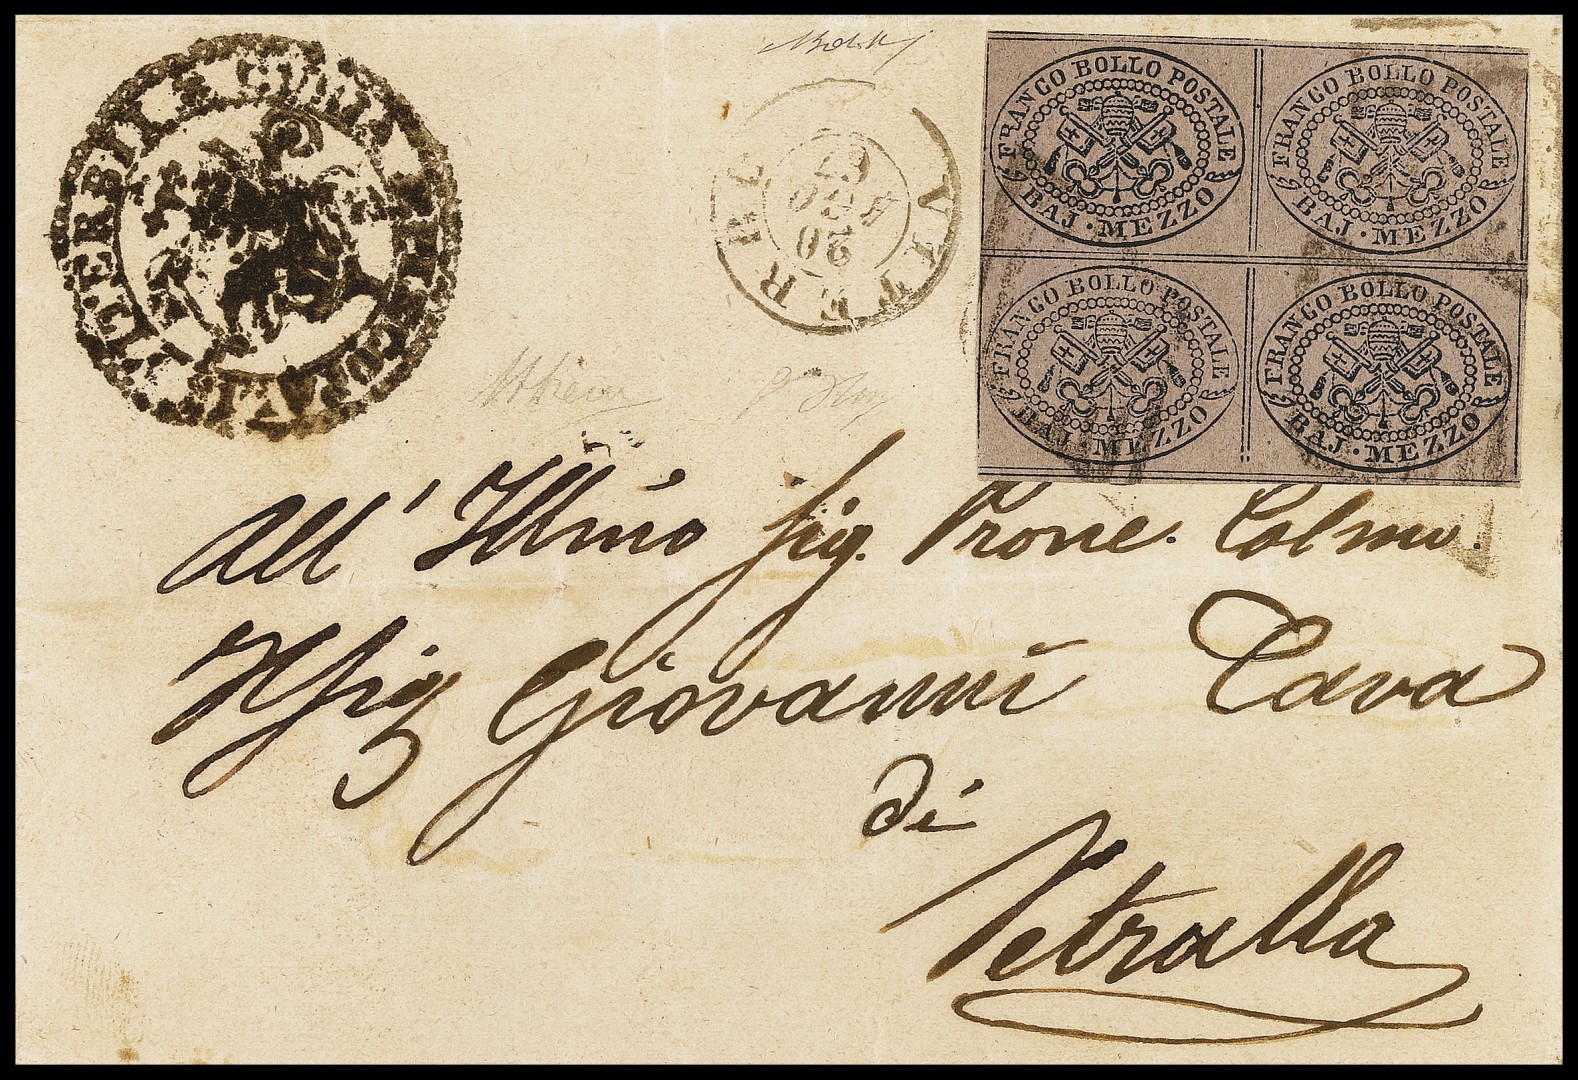 VITERBO
20
67
FRANCO BOLLO POSTALE
BAJ · MEZZO
FRANCO BOLLO POSTALE
BAJ · MEZZO
FRANCO BOLLO POSTALE
BAJ · MEZZO
FRANCO BOLLO POSTALE
BAJ · MEZZO
All' Illmo Sig. Prone. Colmo.
Il Sig Giovanni Cava
di
Vetralla